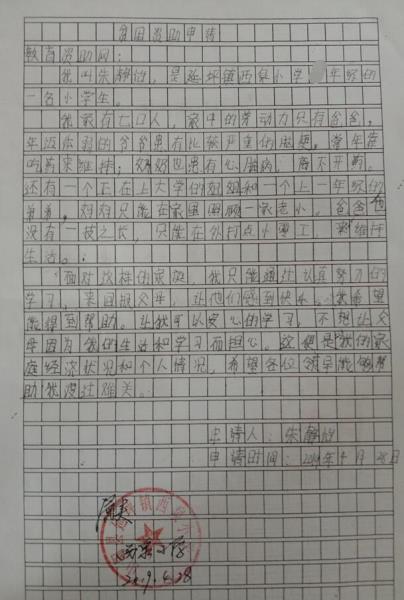 贫困资助申请
教育资助网：
我叫朱静怡，是延坪镇西泉小学，年级的
一名小学生。
我家有七口人，家中的劳动力只有爸爸，
年迈体弱的爷爷患有比较严重的脑梗，常年靠
吃药来维持；奶奶也患有心脏病，离不开药。
还有一个正在上大学的姐姐和一个上一年级的
弟弟，妈妈只能在家里照顾一家老小。爸爸也
没有一技之长，只能在外打点小零工，来维持
生活。
面对这样的家庭，我只能通过认真努力的
学习，来回报父母，让他们感到快乐。我希望
能得到帮助。让我可以安心的学习，不想让父
母因为我的生活和学习而担心。这便是我的家
庭经济状况和个人情况，希望各位领导能够帮
助我渡过难关。
申请人：朱静怡
申请时间：2019年4月28日
镇西泉小学
情况
西泉小学
2019.4.28